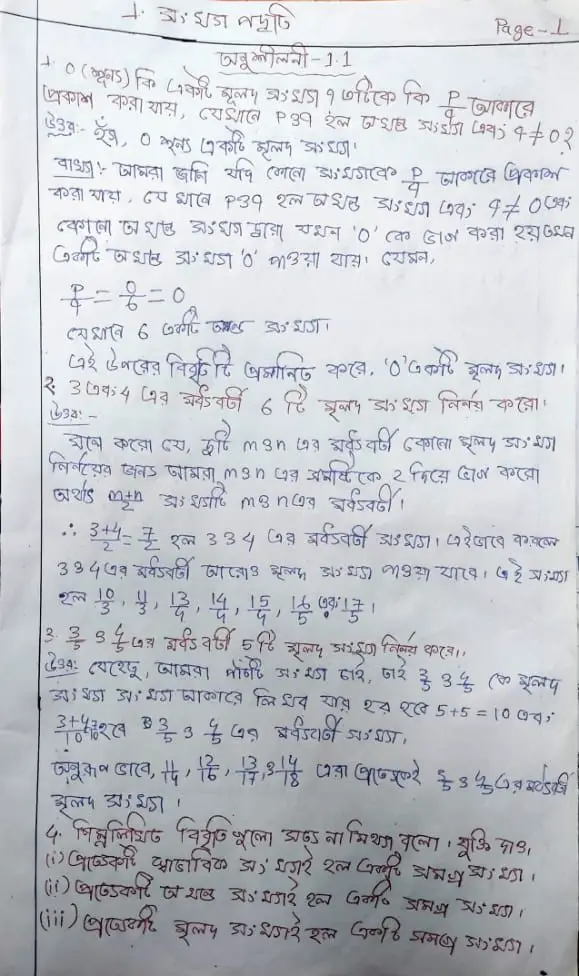 1. সংখ্যা পদ্ধতি
Page-1
অনুশীলনী-1.1
1. 0 (শূন্য) কি একটি মূলদ সংখ্যা? এটিকে কি p/q আকারে
প্রকাশ করা যায়, যেখানে p ও q হল অখণ্ড সংখ্যা এবং q ≠ 0?
উত্তর:- হ্যাঁ, 0 শূন্য একটি মূলদ সংখ্যা।
ব্যাখ্যা:- আমরা জানি যদি কোনো সংখ্যাকে p/q আকারে প্রকাশ
করা যায়, যেখানে p ও q হল অখণ্ড সংখ্যা এবং q ≠ 0 এবং
কোনো অখণ্ড সংখ্যা দ্বারা যখন '0' কে ভাগ করা হয় তখন
একটি অখণ্ড সংখ্যা '0' পাওয়া যায়। যেমন,
p/q = 0/6 = 0
যেখানে 6 একটি অখণ্ড সংখ্যা।
এই উপরের বিবৃতিটি প্রমানিত করে, '0' একটি মূলদ সংখ্যা।
2. 3 এবং 4 এর মধ্যবর্তী 6 টি মূলদ সংখ্যা নির্নয় করো।
উত্তর:-
মনে করো যে, দুটি m ও n এর মধ্যবর্তী কোনো মূলদ সংখ্যা
নির্নয়ের জন্য আমরা m ও n এর সমষ্টিকে 2 দিয়ে ভাগ করো
অর্থাৎ m+n/2 সংখ্যাটি m ও n এর মধ্যবর্তী।
∴ 3+4/2 = 7/2 হল 3 ও 4 এর মধ্যবর্তী সংখ্যা। এইভাবে করলে
3 ও 4 এর মধ্যবর্তী আরোও মূলদ সংখ্যা পাওয়া যাবে। এই সংখ্যা
হল 10/3, 11/3, 13/4, 14/4, 15/4, 16/5 এবং 17/5।
3. 3/5 ও 4/5 এর মধ্যবর্তী 5 টি মূলদ সংখ্যা নির্নয় করো।
উত্তর: যেহেতু, আমরা পাঁচটি সংখ্যা চাই, তাই 3/5 ও 4/5 কে মূলদ
সংখ্যা সংখ্যা আকারে লিখব যার হর হবে 5+5 = 10 এবং
3+4/10 হবে 3/5 ও 4/5 এর মধ্যবর্তী সংখ্যা,
অনুরূপ ভাবে, ও 14/18 এরা প্রত্যেকেই ও 4/5 এর মধ্যবর্তী
মূলদ সংখ্যা।
4. নিম্নলিখিত বিবৃতি গুলো সত্য না মিথ্যা বলো। যুক্তি দাও,
(i) প্রত্যেকটি স্বাভাবিক সংখ্যাই হল একটি সমগ্র সংখ্যা।
(ii) প্রত্যেকটি অখণ্ড সংখ্যাই হল একটি সমগ্র সংখ্যা।
(iii) প্রত্যেকটি মূলদ সংখ্যাই হল একটি সমগ্র সংখ্যা।